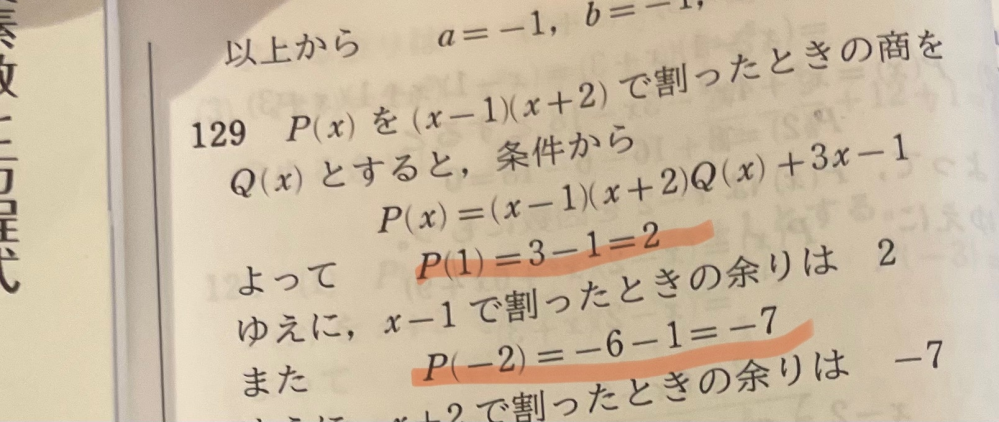 以上から a=-1, b=-1,
129 P(x)を(x-1)(x+2)で割ったときの商を
Q(x)とすると，条件から
P(x)=(x-1)(x+2)Q(x)+3x-1
よって P(1)=3-1=2
ゆえに，x-1で割ったときの余りは 2
また P(-2)=-6-1=-7
x+2で割ったときの余りは -7